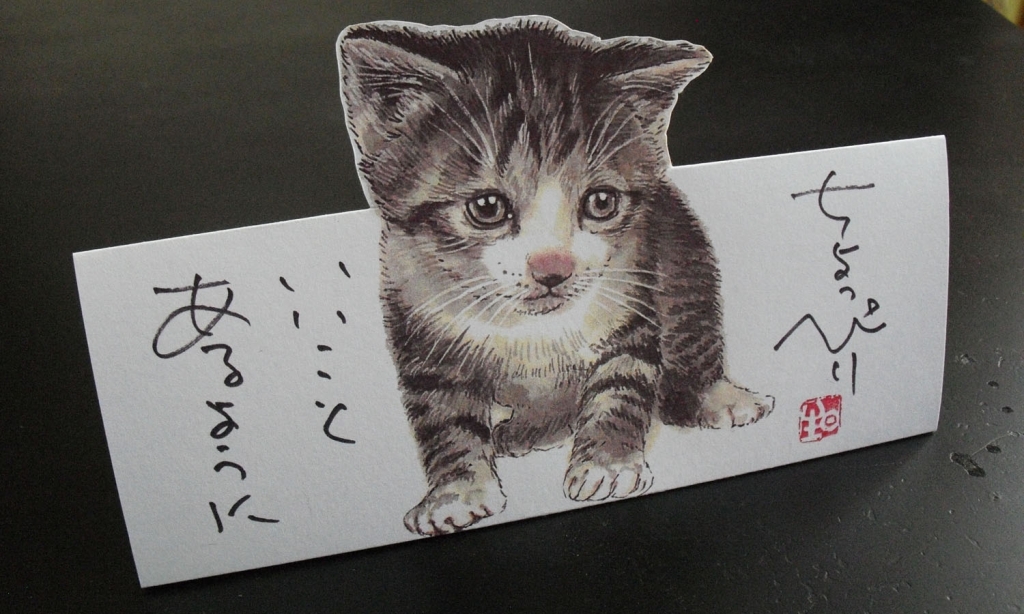 ちょっぴり
いいこと
あるように